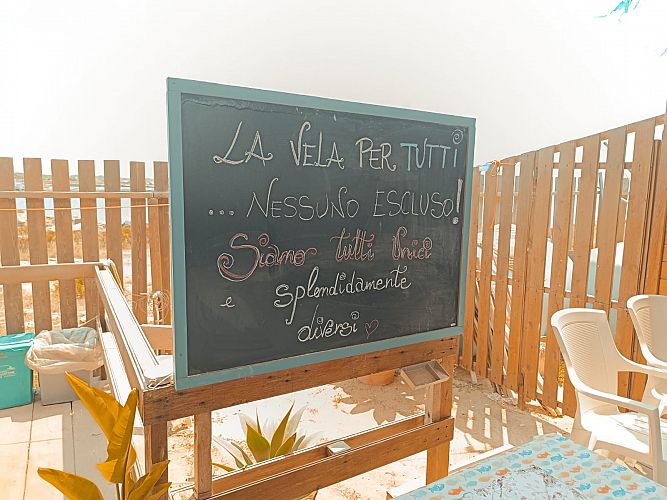 LA VELA PER TUTTI
... NESSUNO ESCLUSO!
Siamo tutti Unici
e splendidamente
diversi